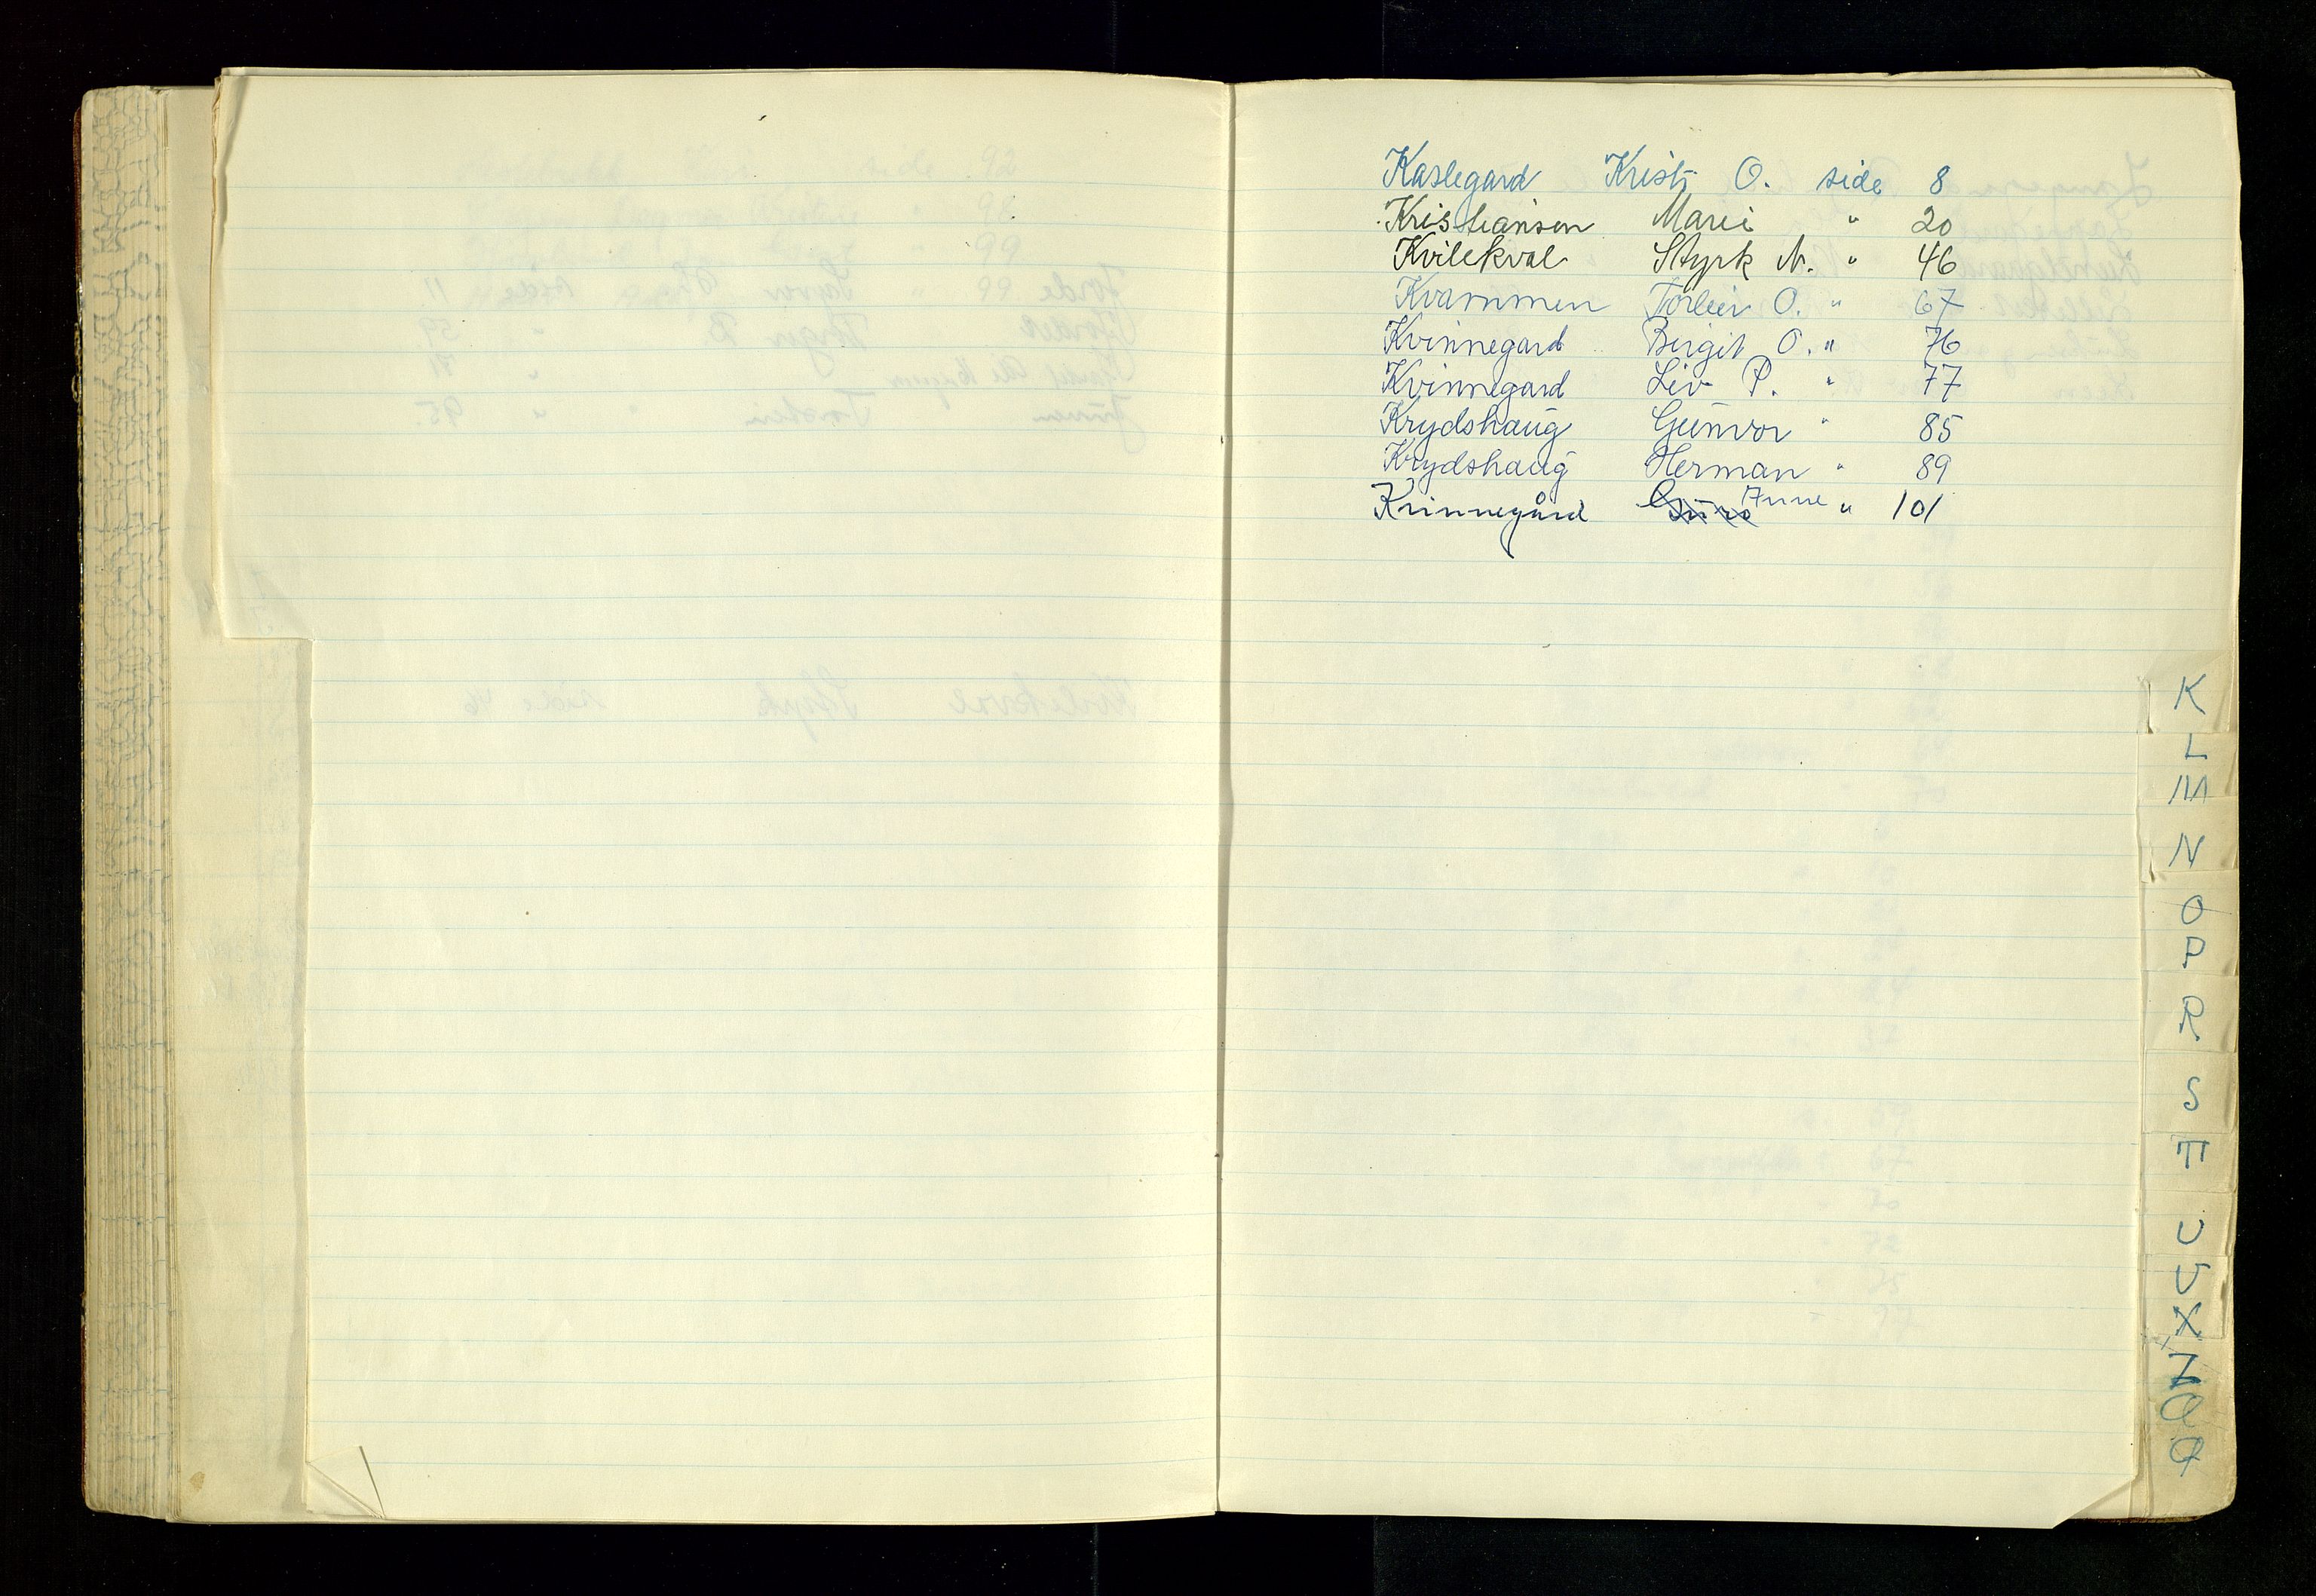 Kaslegard Kristi O. side 8
Kristiansen Marie " 20
Kvilekval Styrk N. " 46
Kvammen Torleiv O. " 67
Kvinnegard Birgit O. " 76
Kvinnegard Liv P. " 77
Krydshaug Gunvor " 85
Krydshaug Herman " 89
Kvinnegård Guro Anne " 101
K
L
M
N
O
P
R
S
T
U
V
X
Z
Æ
Ø